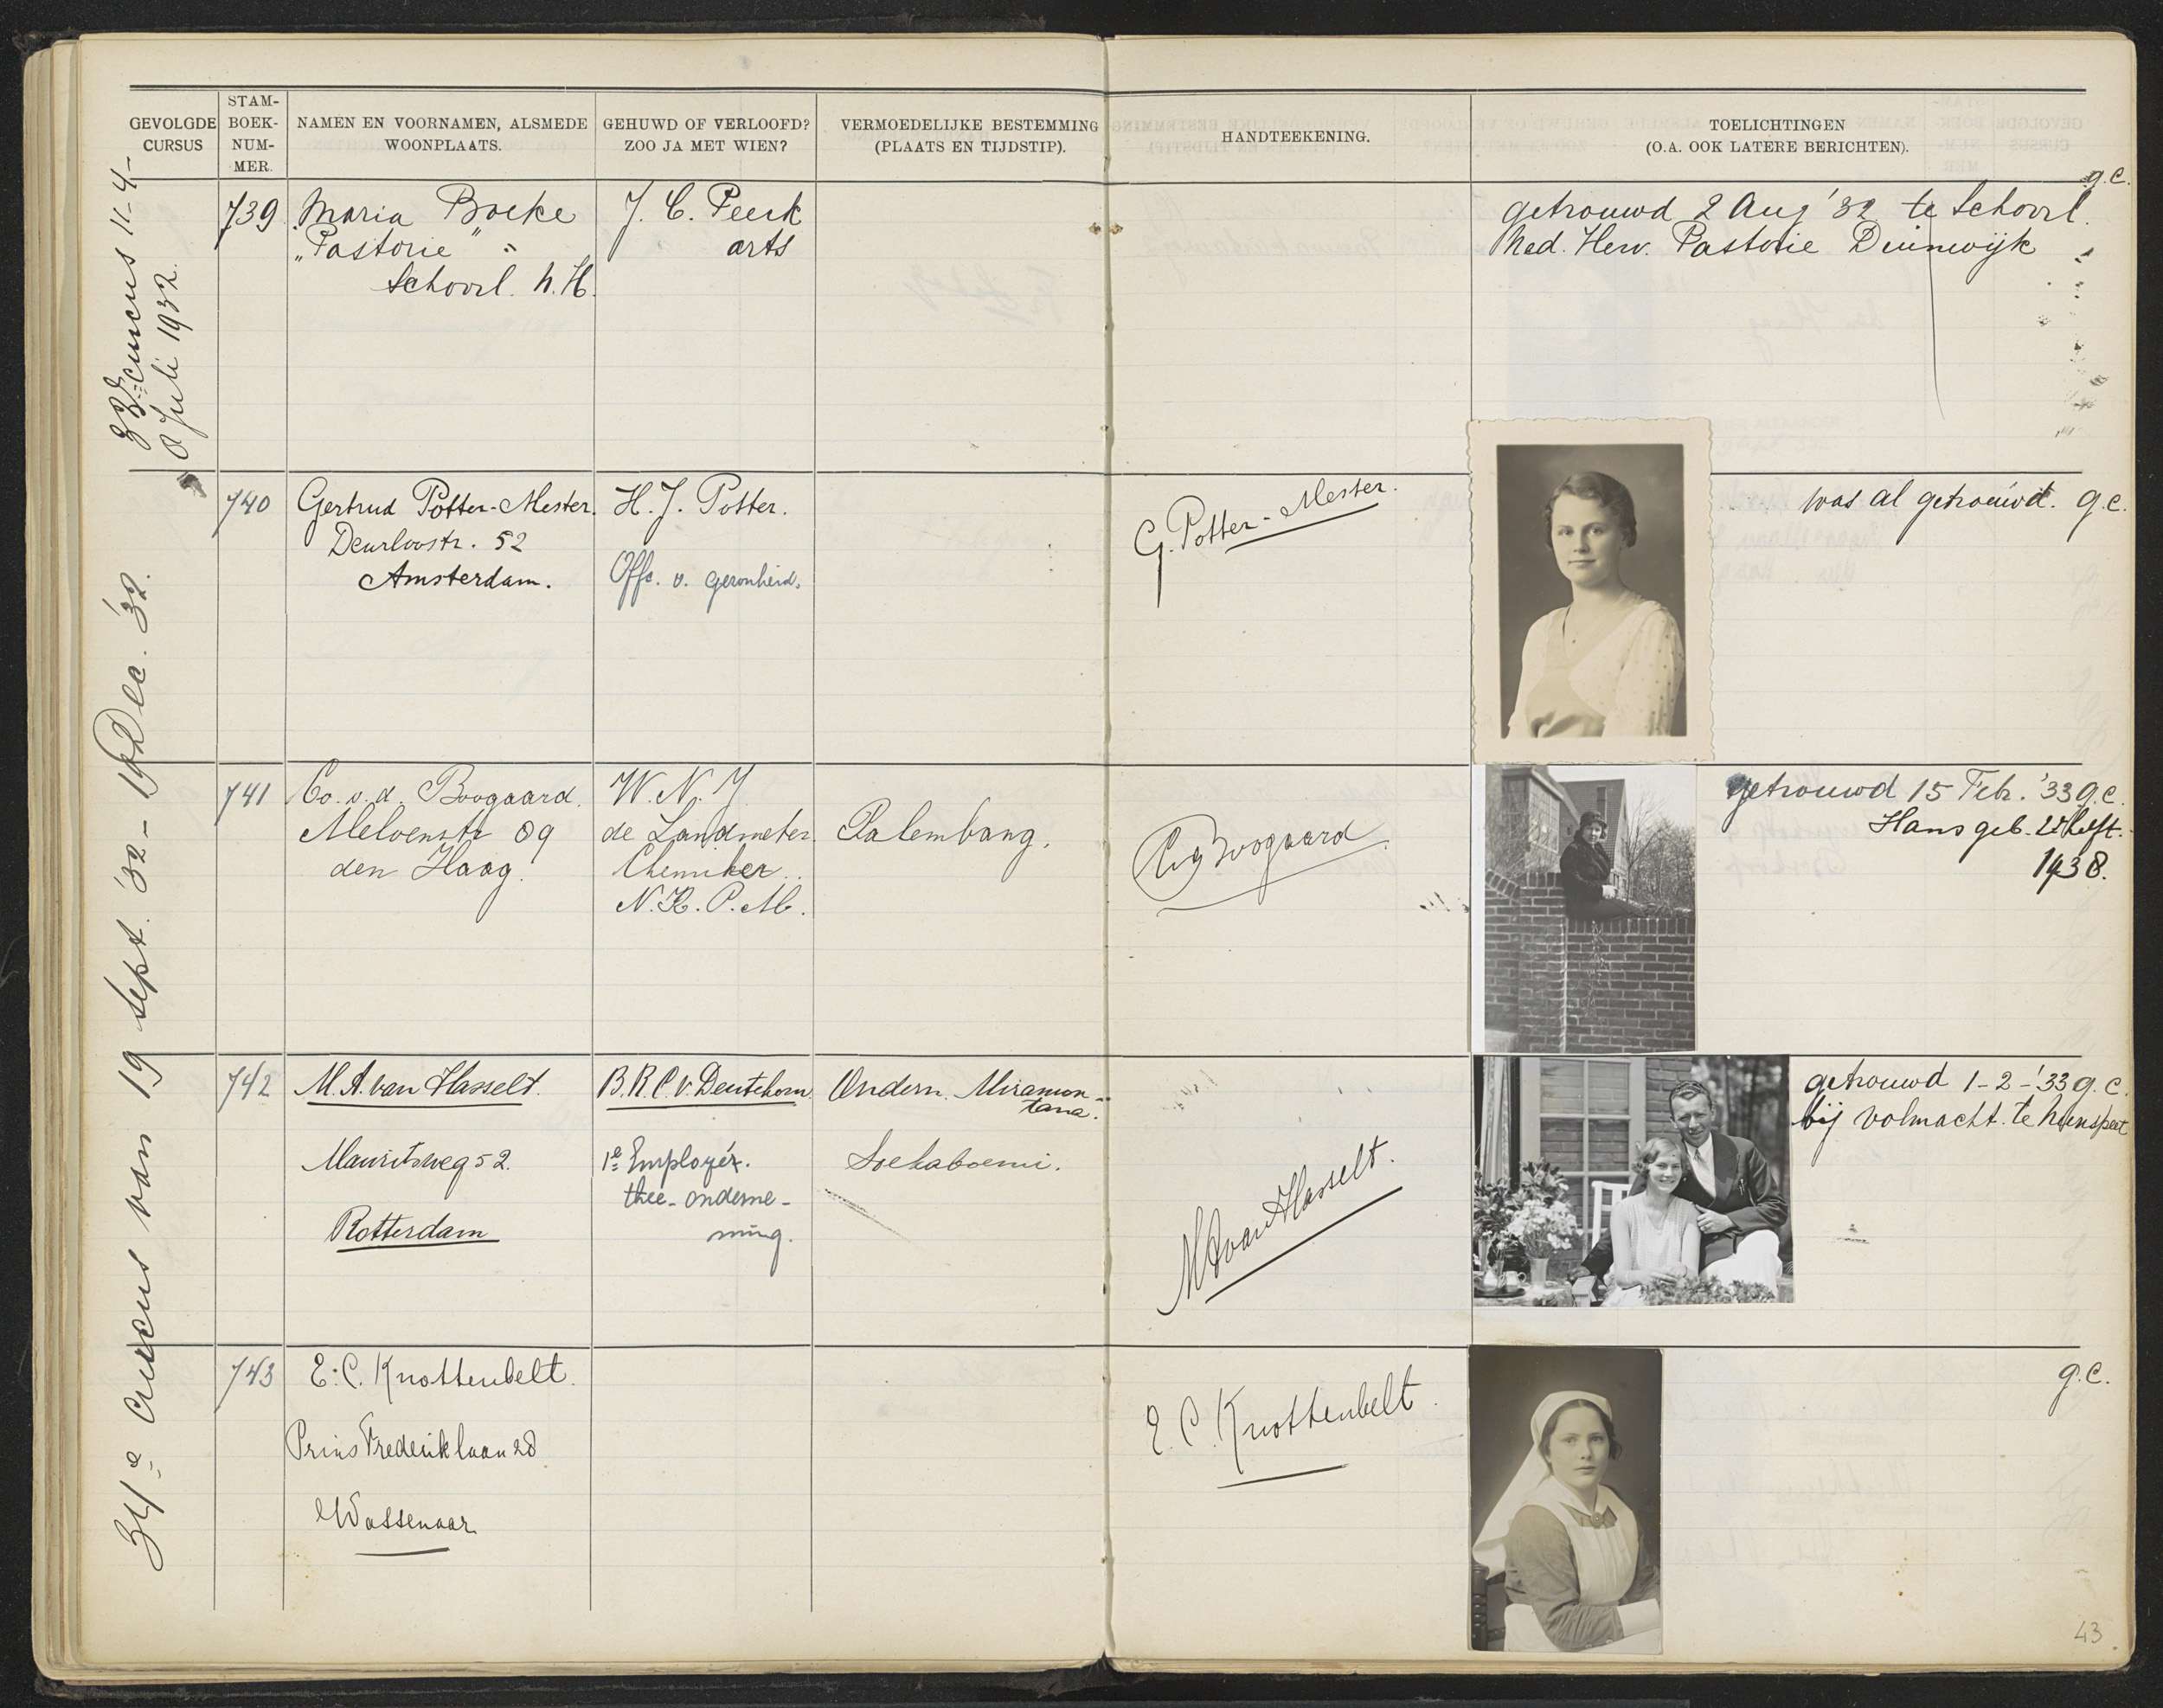 GEVOLGDE CURSUS
STAM-BOEK-NUM-MER.
NAMEN EN VOORNAMEN, ALSMEDE WOONPLAATS.
GEHUWD OF VERLOOFD? ZOO JA MET WIEN?
VERMOEDELIJKE BESTEMMING (PLAATS EN TIJDSTIP).
HANDTEEKENING.
TOELICHTINGEN (O.A. OOK LATERE BERICHTEN).
33e cursus 11-4-
8 Juli 1932.
739
Maria Boeke
"Pastorie"
Schoorl. N.H.
J. C. Peerk
arts
g.c.
getrouwd 2 Aug '32 te Schoorl.
Ned. Herv. Pastorie Duinwijk
34e cursus van 19 Sept. '32 - Dec. '32.
740
Gertrud Potter-Mester.
Deurloostr. 52
Amsterdam.
H. J. Potter.
Off. v. gezondheid.
G. Potter-Mester.
was al getrouwd. g.c.
741
Co. v. d. Boogaard.
den Haag.
W. N. J.
de Landmeter.
Chemiker
N.K.P.M.
Palembang.
Boogaard
getrouwd 15 Febr. '33 g.c.
Hans geb. 2e helft.
1938.
742
M. A. van Hasselt.
Mauritsweg 52.
Rotterdam
B. R. C. v.
1e Employé.
thee-onderne-
ming.
Ondern. Miramon-
tana.
Soekaboemi.
M A van Hasselt.
getrouwd 1-2-'33 g.c.
bij volmacht. te Nunspeet
743
E. C. Knottenbelt.
Prins Frederiklaan 28
Wassenaar
E. C. Knottenbelt.
g.c.
43.